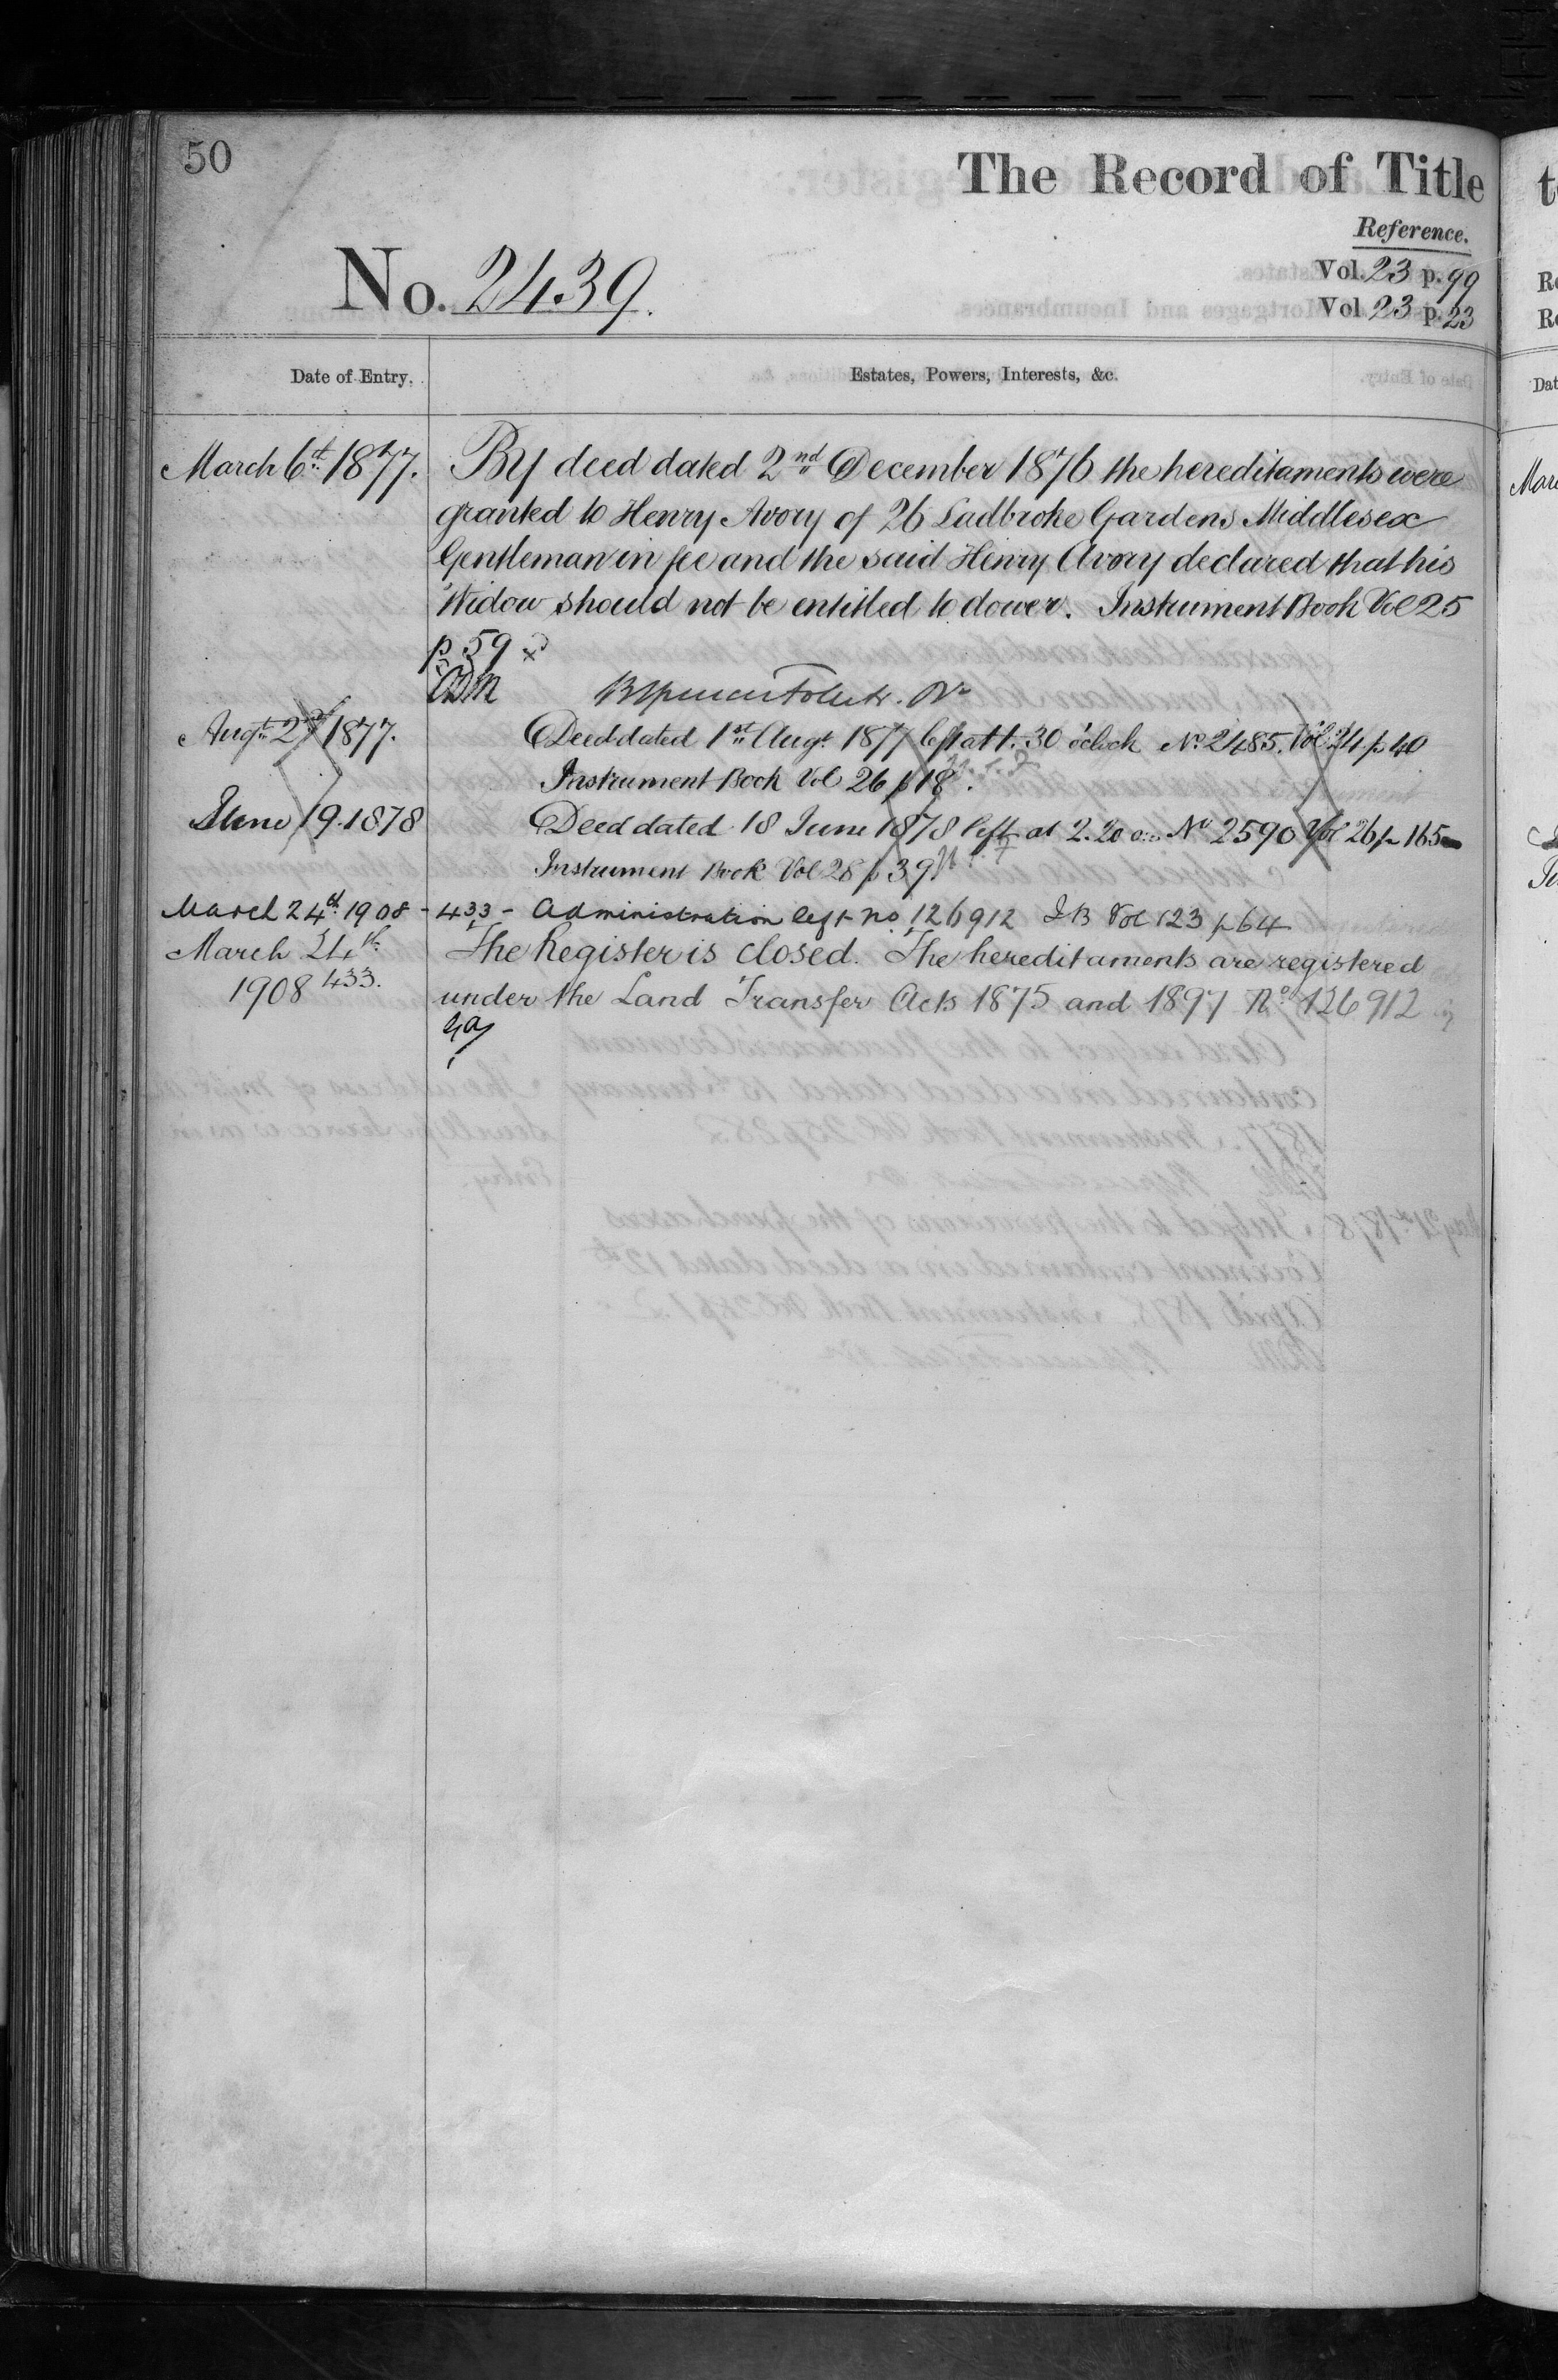 50
The Record of Title
Reference.
No. 2439.
Vol. 23 p. 99
Vol. 23 p. 23
Date of Entry.
Estates, Powers, Interests, &c.
March 6th 1877.
By deed dated 2nd December 1876 the hereditaments were
granted to Henry Avory of 26 Ladbroke Gardens Middlesex
Gentleman in fee and the said Henry Avory declared that his
Widow should not be entitled to dower. Instrument Book Vol 25
p 59
Augt 2nd 1877.
Deed dated 1st Augt 1877 left at 1.30 o'clock No 2485. Vol 24 p 40
Instrument Book Vol 26 p 18.
June 19. 1878
Deed dated 18 June 1878 left at 2.20 No 2590 Vol 26 p 165
Instrument Book Vol 28 p 39.
March 24th 1908 - 433 - Administration left no. 126912 I B Vol 123 p 64
March 24th 1908 433.
The Register is closed. The hereditaments are registered
under the Land Transfer Acts 1875 and 1897 No 126912